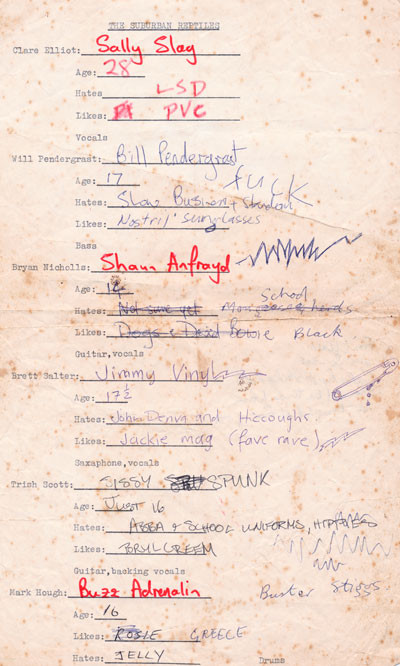 THE SUBURBAN REPTILES
Clare Elliot: Sally Slag
Age: 28
Hates LSD
Likes: PVC
Vocals
Will Pendergrast: Bill Pendergrast
Age: 17 FUCK
Hates: Slow Business + Standon
Likes: Nostril' sunglasses
Bass
Bryan Nicholls: Shaun Anfrayd
Age:
School
Hates: Not sure yet
Likes: Dogs & Dead Bowie Black
Guitar,vocals
Brett Salter: Jimmy Vinyl
Age: 17½
Hates: John Denva and Hiccoughs
Likes: Jackie mag (fave rave)
Saxaphone,vocals
Trish Scott: SISSY SPUNK
Age: JUST 16
Hates: ABBA & SCHOOL UNIFORMS, HIPPIES
Likes: BRYLCREEM
Guitar,backing vocals
Mark Hough: Buzz Adrenalin Buster Stiggs
Age: 16
Likes: ROSIE GREECE
Hates: JELLY
Drums